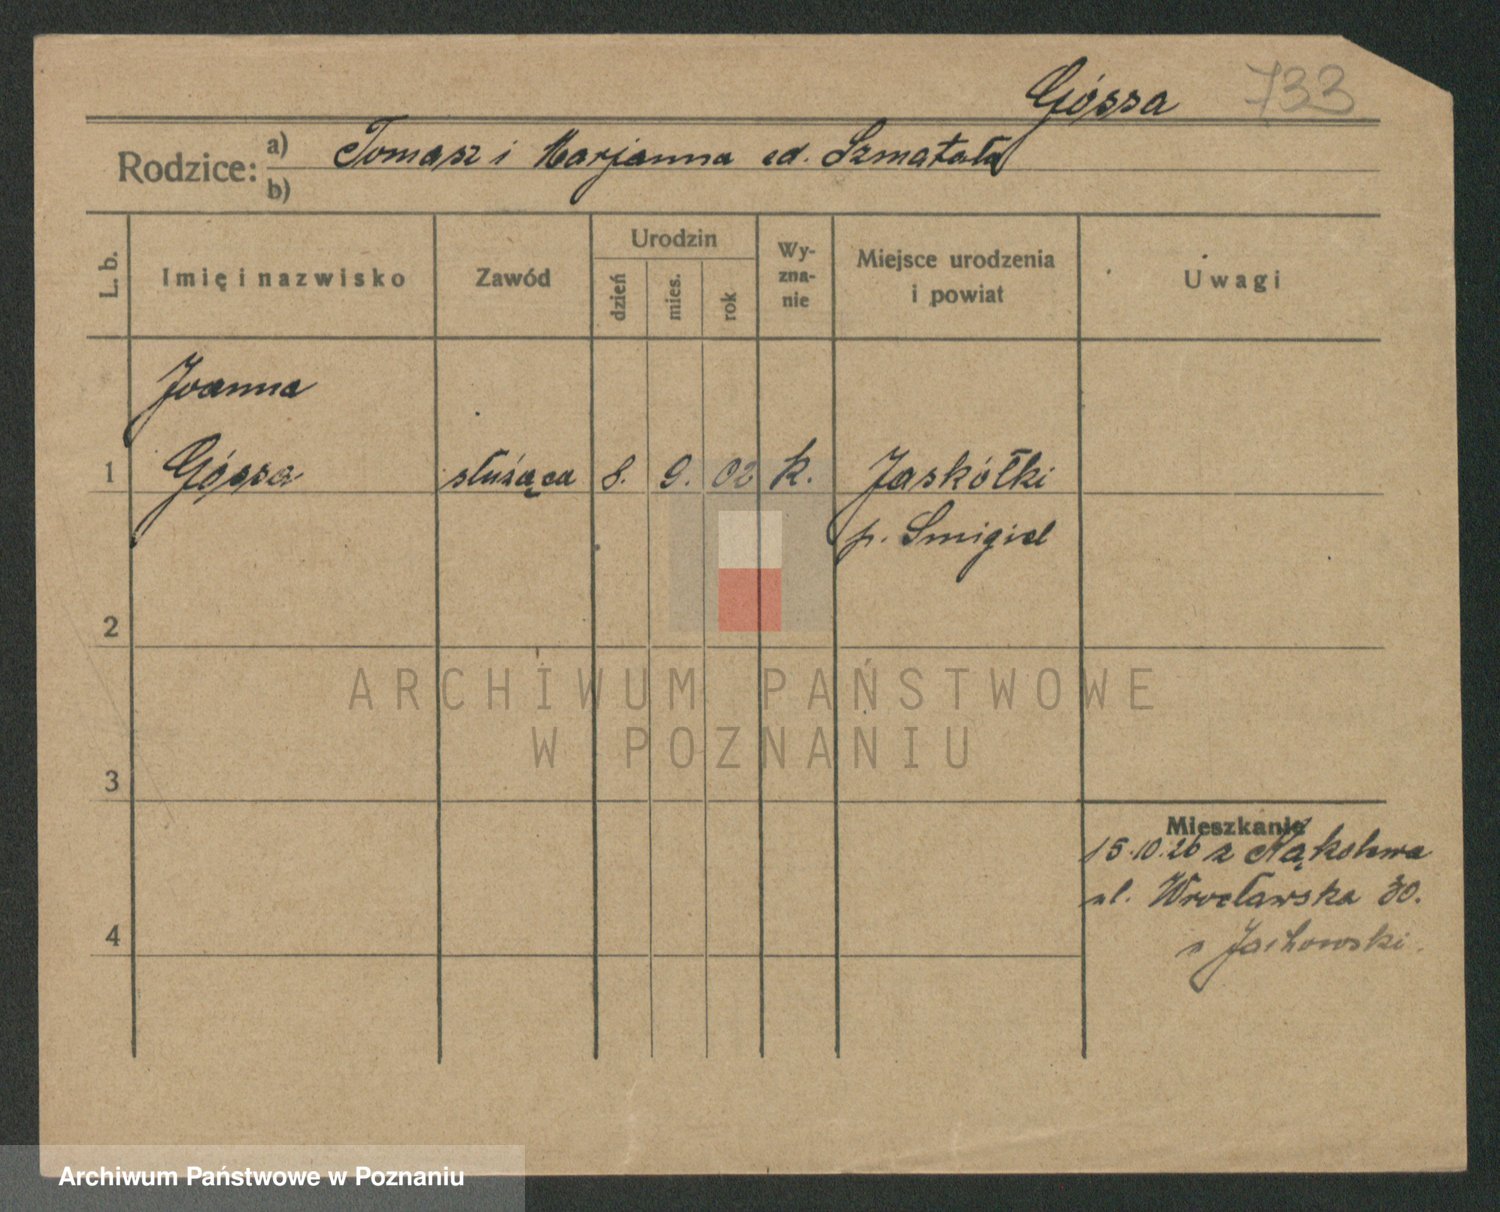 Góssa 733
Rodzice: a) Tomasz i Marjanna zd. Szmatała
b)
L. b.
Imię i nazwisko
Zawód
Urodzin
dzień
mies.
rok
Wy-
zna-
nie
Miejsce urodzenia
i powiat
Uwagi
Joanna
1 Góssa służąca 8. 9. 02 k. Jaskółki
p. Smigiel
2
3
4
Mieszkanie
15.10.26 z Mąkolewa
ul. Wrocławska 30.
Jachowski.
ARCHIWUM PAŃSTWOWE
W POZNANIU
Archiwum Państwowe w Poznaniu